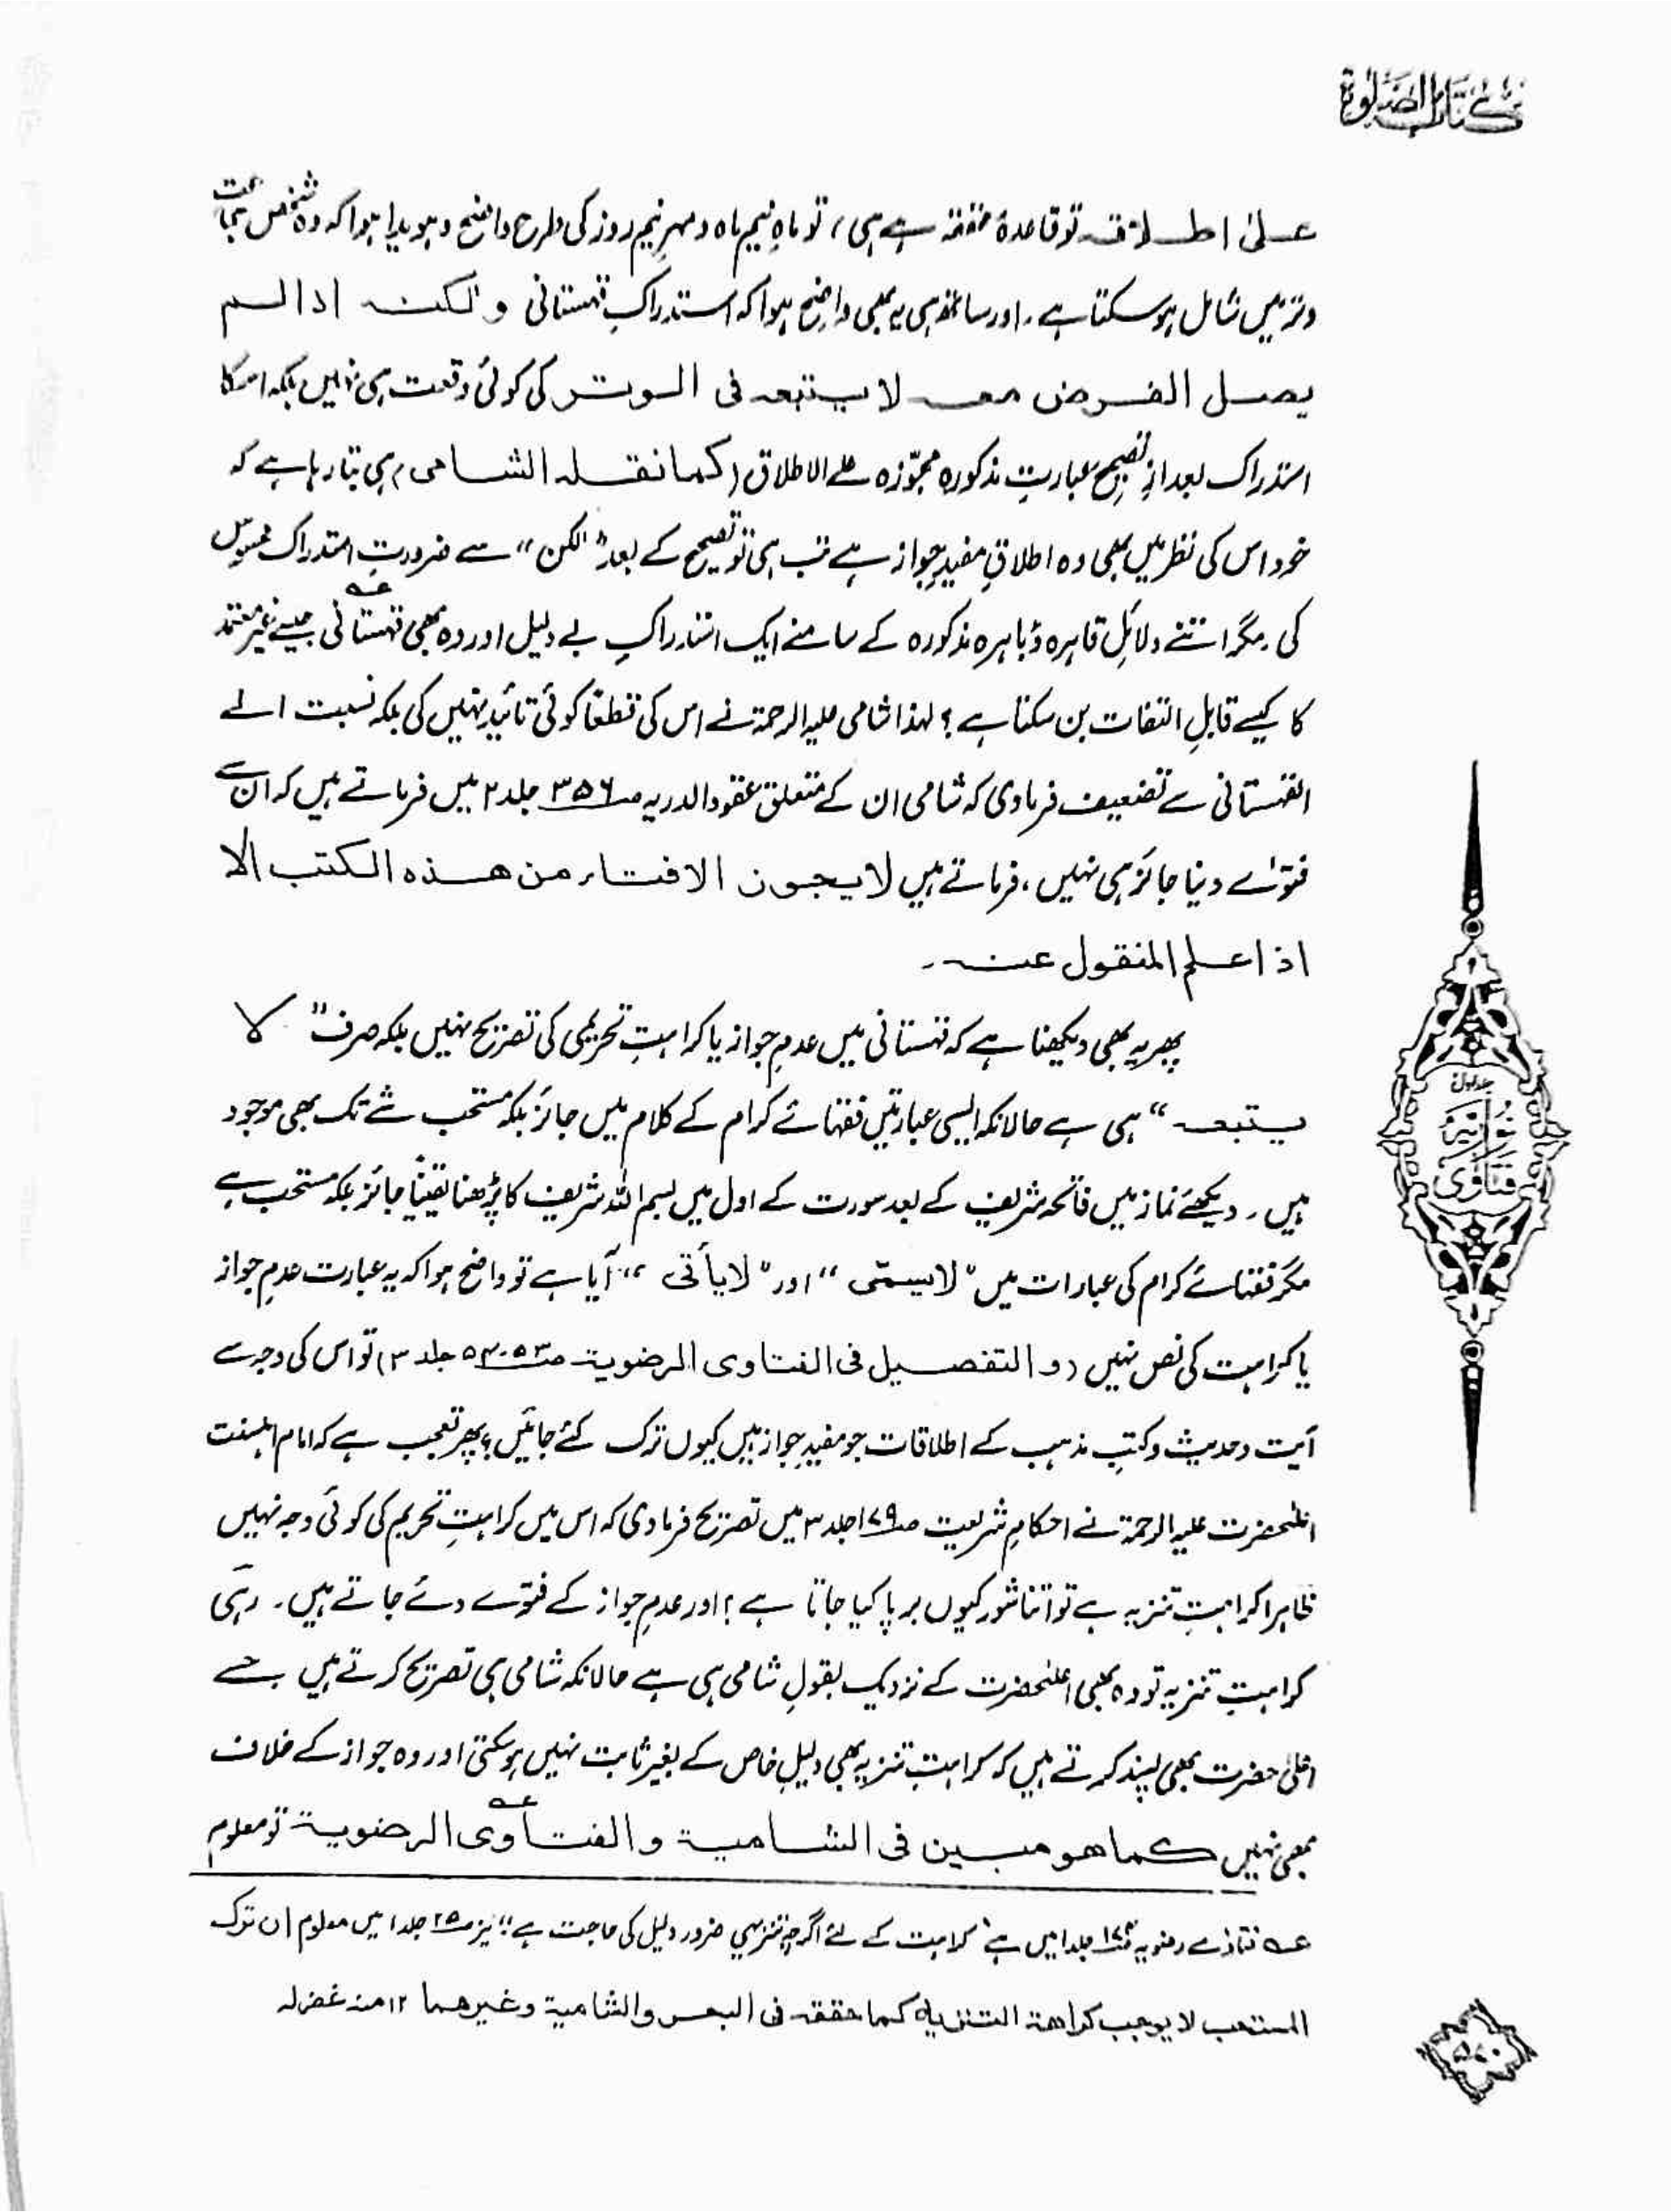 کتاب الصلوٰة
علیٰ اطلاقہ تو قاعدۂ متفقہ ہے ہی، تو ماہِ نیم ماہ و مہرِ نیم روز کی طرح واضح و ہویدا ہوا کہ وہ شخص جماعت
وتر میں شامل ہو سکتا ہے۔ اور ساتھ ہی یہ بھی واضح ہوا کہ استدراکِ قہستانی ولکنہ اذا لم
یصل الفرض معہ لا یتبعہ فی الوتر کی کوئی وقعت ہی نہیں بلکہ اس کا
استدراک بعد از تصحیح عبارتِ مذکورہ مجوّزہ علے الاطلاق (کما نقلہ الشامی) ہی بتا رہا ہے کہ
خود اس کی نظر میں بھی وہ اطلاق مفیدِ جواز ہے تب ہی تو تصحیح کے بعد "لکن" سے ضرورتِ استدراک محسوس
کی۔ مگر اتنے دلائلِ قاہرہ و باہرہ مذکورہ کے سامنے ایک استدراکِ بے دلیل اور وہ بھی قہستانی عہ جیسے غیر معتمد
کا کیسے قابلِ التفات بن سکتا ہے؟ لہذا شامی علیہ الرحمۃ نے اس کی قطعًا کوئی تائید نہیں کی بلکہ نسبت الے
القہستانی سے تضعیف فرما دی کہ شامی ان کے متعلق عقود الدریہ صہ۳۵۶ جلد ۲ میں فرماتے ہیں کہ ان سے
فتوٰے دینا جائز ہی نہیں، فرماتے ہیں لا یجوز الافتاء من ھذہ الکتب الا
اذا علم المنقول عنہ۔
پھر یہ بھی دیکھنا ہے کہ قہستانی میں عدمِ جواز یا کراہتِ تحریمی کی تصریح نہیں بلکہ صرف "لا
یتبعہ" ہی ہے حالانکہ ایسی عبارتیں فقہائے کرام کے کلام میں جائز بلکہ مستحب شے تک بھی موجود
ہیں۔ دیکھئے نماز میں فاتحہ شریف کے بعد سورت کے اول میں بسم اللہ شریف کا پڑھنا یقینًا جائز بلکہ مستحب ہے
مگر فقہائے کرام کی عبارات میں "لا یسمّی" اور "لا یأتی" آیا ہے تو واضح ہوا کہ یہ عبارت عدمِ جواز
یا کراہت کی نص نہیں (و التفصیل فی الفتاوی الرضویۃ صہ۵۳،۵۴ جلد ۳) تو اس کی وجہ سے
آیت و حدیث و کتبِ مذہب کے اطلاقات جو مفیدِ جواز ہیں کیوں ترک کئے جائیں؟ پھر تعجب ہے کہ امام اہلسنت
اعلٰحضرت علیہ الرحمۃ نے احکامِ شریعت صہ۱۷۹ جلد ۳ میں تصریح فرما دی کہ اس میں کراہتِ تحریم کی کوئی وجہ نہیں
ظاہرا کراہتِ تنزیہ ہے تو اتنا شور کیوں برپا کیا جاتا ہے؟ اور عدمِ جواز کے فتوے دئے جاتے ہیں۔ رہی
کراہتِ تنزیہ تو وہ بھی اعلٰحضرت کے نزدیک بقولِ شامی ہی ہے حالانکہ شامی ہی تصریح کرتے ہیں جسے
اعلیٰ حضرت بھی پسند کرتے ہیں کہ کراہتِ تنزیہ بھی دلیلِ خاص کے بغیر ثابت نہیں ہو سکتی اور وہ جواز کے خلاف
بھی نہیں کما ھو مبین فی الشامیۃ و الفتاوی الرضویۃ عہ تو معلوم
عہ فتاوٰے رضویہ جلد ۱ میں ہے "کراہت کے لئے اگرچہ تنزیہی ضرور دلیل کی حاجت ہے" نیز صہ۲۵ جلد ۱ میں معلوم ان ترک
المستحب لا یوجب کراھۃ التنزیہ کما حققہ فی البحر والشامیۃ وغیرھما ۱۲ منہ غفرلہ
جلد اول
فتاوٰی نوریہ
۵۷۰